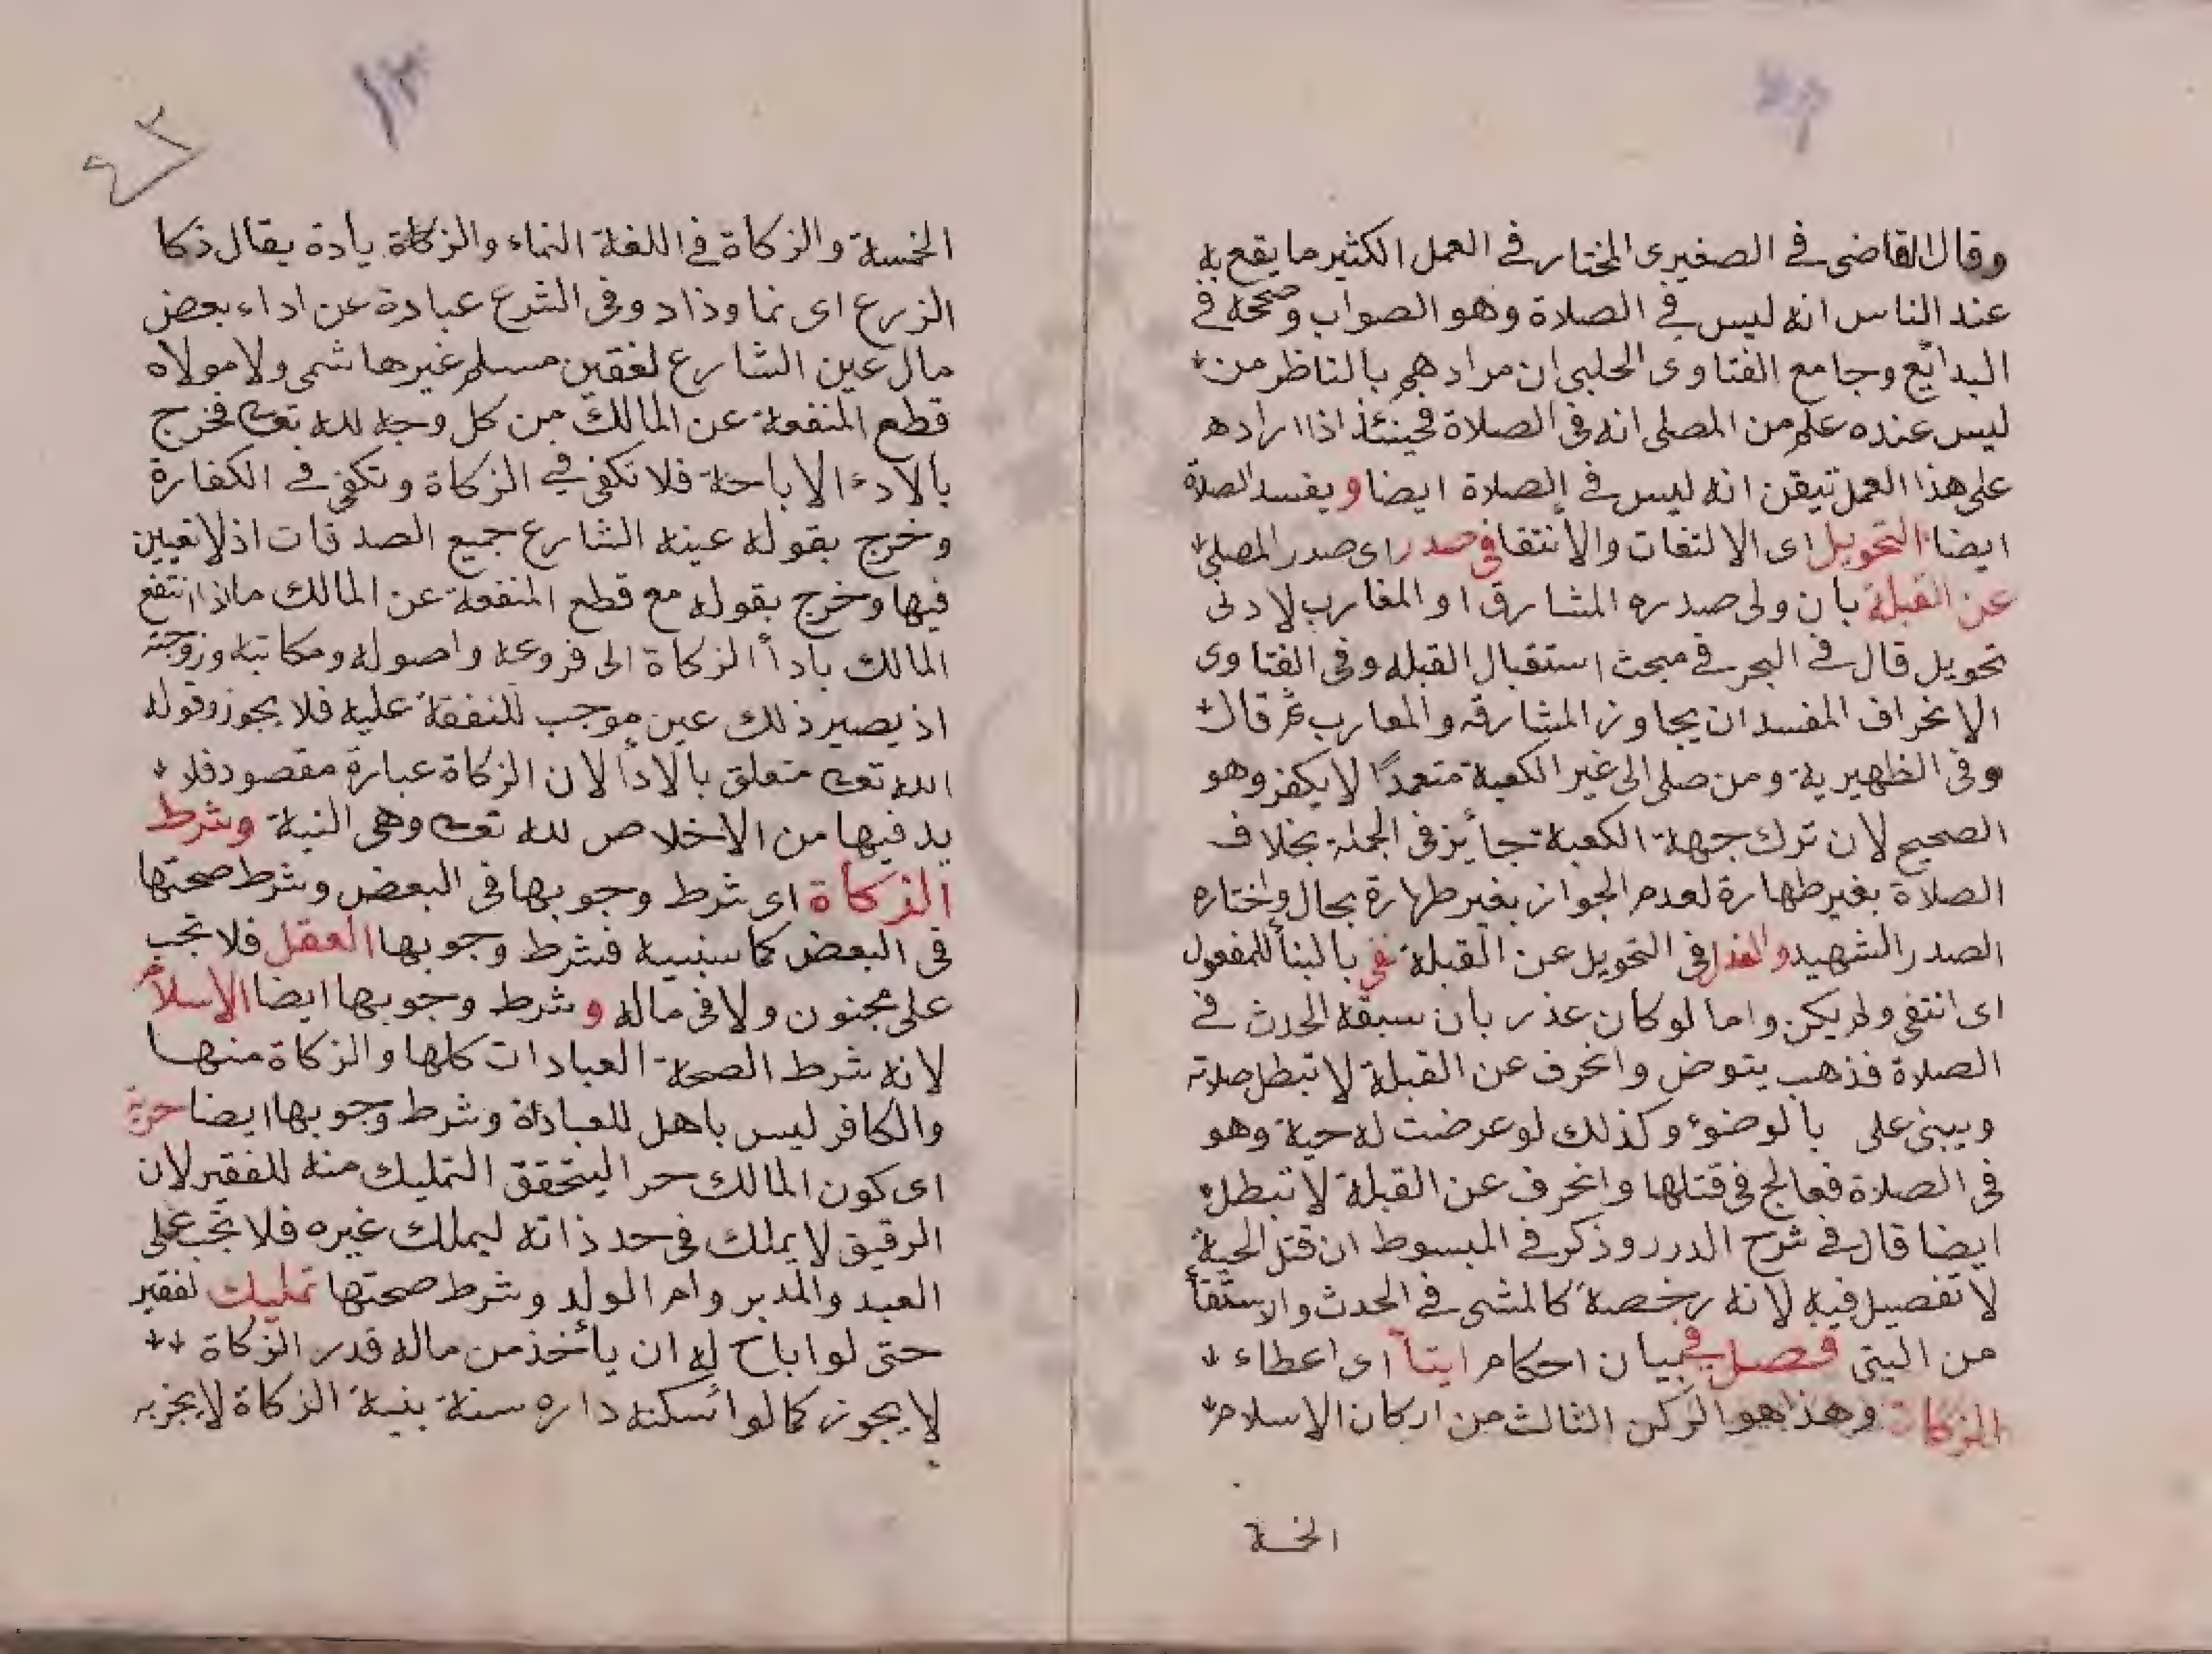 وقال القاضى فى الصغيرى المختار فى العمل الكثير ما يقع به
عند الناس انه ليس فى الصلاة وهو الصواب وصححه فى
البدائع وجامع الفتاوى الحلبى ان مرادهم بالناظر من
ليس عنده علم من المصلى انه فى الصلاة فحينئذ اذا اراده
على هذا العمل تيقن انه ليس فى الصلاة ايضا ويفسد الصلاة
ايضا التحويل اى الالتفات والأنتقا فى صدر اى صدر المصلى
عن القبلة بان ولى صدره المشارق او المغارب لادنى
تحويل قال فى البحر فى مبحث استقبال القبله وفى الفتاوى
الانحراف المفسد ان يجاوز المشارقه والمعارب ثم قال
وفى الظهيرية ومن صلى الى غير الكعبة متعمدًا لا يكفر وهو
الصحيح لان ترك جهة الكعبة جائز فى الجملة بخلاف
الصلاة بغير طهارة لعدم الجواز بغير طهارة بحال واختاره
الصدر الشهيد والعذر فى التحويل عن القبلة نفى بالبنأ للمفعول
اى انتفى ولم يكن واما لو كان عذر بان سبقه الحدث فى
الصلاة فذهب يتوض وانحرف عن القبلة لا تبطل صلاته
ويبنى على بالوضوء وكذلك لو عرضت له حية وهو
فى الصلاة فعالج فى قتلها وانحرف عن القبلة لا تبطل
ايضا قال فى شرح الدرر وذكر فى المبسوط ان قتل الحية
لا تفصيل فيه لانه رخصة كالمشى فى الحدث والاستقأ
من البئى فصل فى بيان احكام ايتآ اى اعطاء
الزكات وهذا هو الركن الثالث من اركان الاسلام
الخسة
١٣
الخمسة والزكاة فى اللغة النماء والزكاة يادة يقال ذكا
الزرع اى نما وذاد وفى الشرع عبادة عن اداء بعض
مال عين الشارع لفقين مسلم غير هاشمى ولا مولاه
قطع المنفعة عن المالك من كل وجه لله تعـ فخرج
بالادء الاباحة فلا تكفى فى الزكاة وتكفى فى الكفارة
وخرج بقوله عينه الشارع جميع الصدقات اذ لا تعيين
فيها وخرج بقوله مع قطع المنفعة عن المالك ماذا انتفع
المالك بادأ الزكاة الى فروعه واصوله ومكاتبه وزوجته
اذ يصير ذلك عين موجب للنفقة عليه فلا يجوز وقوله
الله تعـ متعلق بالادأ لان الزكاة عبارة مقصود فلا
بد فيها من الاخلاص لله تعـ وهى النية وشرط
الزكاة اى شرط وجوبها فى البعض وشرط صحتها
فى البعض كما سنبينه فشرط وجوبها العقل فلا تجب
على مجنون ولا فى ماله وشرط وجوبها ايضا الاسلام
لانه شرط الصحة العبادات كلها والزكاة منها
والكافر ليس باهل للعبادة وشرط وجوبها ايضا حرية
اى كون المالك حر اليتحقق التمليك منه للفقير لان
الرقيق لا يملك فى حد ذاته ليملك غيره فلا تجب على
العبد والمدبر وام الولد وشرط صحتها تمليك لفقير
حتى لو اباح له ان يأخذ من ماله قدر الزكاة
لا يجوز كما لو اسكنه داره سنة بنية الزكاة لا يجزيه